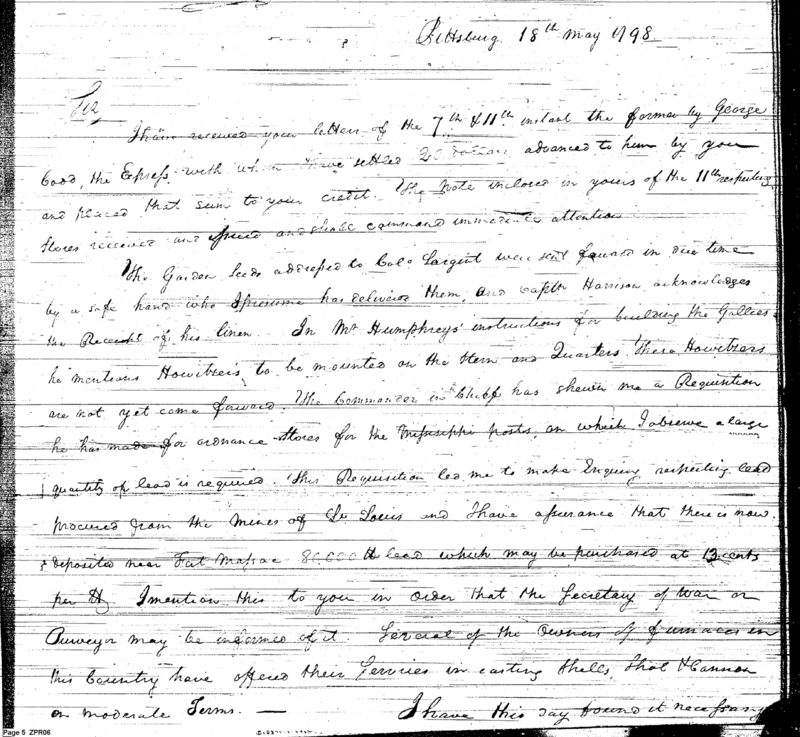 Pittsburg 18th May 1798
Sir,
I have received your letters of the 7th & 11th instant the former by George
the Express with whom I have settled 20 dollars advanced to him by you
and placed that sum to your credit. The Note inclosed in yours of the 11th respecting
Stores received and and shall command immediate attention
The Garden seeds addressed to Colo Sargent were sent forward in due time
by a safe hand who I presume has delivered them, and Captn Harrison acknowledges
the Receipt of his linen. In Mr Humphreys' instructions for building the Gallies
he mentions Howitzers to be mounted on the Stern and Quarters. These Howitzers
are not yet come forward. The Commander in Chief has shewn me a Requisition
he has made for ordnance Stores for the Missisippi posts, on which I observe a large
quantity of lead is required. This Requisition led me to make Enquiry respecting lead
procured from the Mines of St Louis and I have assurance that there is now
deposited near Fort Massac 80,000 lb lead which may be purchased at 13 cents
per lb I mention this to you in order that the Secretary of War or
Purveyor may be informed of it. Several of the Owners of furnaces in
this Country have offered their Services in casting Shells, Shot & Cannon
on moderate Terms. — I have this day found it necessary
Page 5 ZPR06